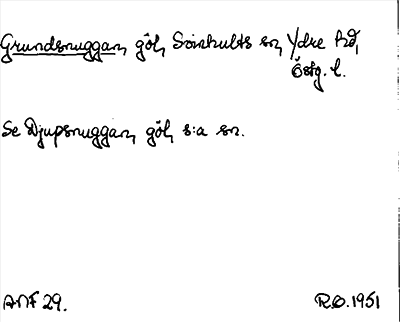 Grundsnuggan, göl, Svinhults sn, Ydre hd,
Östg. l.
Se Djupsnuggan, göl, s:a sn.
ANF 29.
R.O. 1951